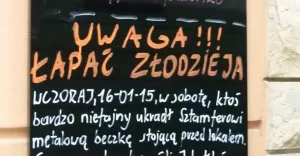 UWAGA!!!
ŁAPAĆ ZŁODZIEJA
WCZORAJ, 16-01-15, w sobotę, ktoś
bardzo niefajny ukradł Sztamferowi
metalową beczkę stojącą przed lokalem.